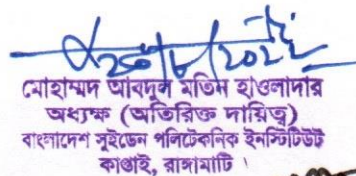 মোহাম্মদ আবদুল মতিন হাওলাদার
অধ্যক্ষ (অতিরিক্ত দায়িত্ব)
বাংলাদেশ সুইডেন পলিটেকনিক ইনস্টিটিউট
কাপ্তাই, রাঙ্গামাটি।